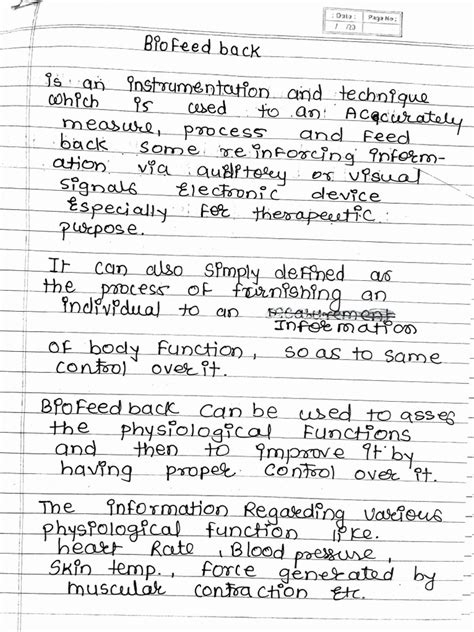 Date: Page No:
/ /20
Biofeed back
is an instrumentation and technique
which is used to an Accurately
measure, process and Feed
back some reinforcing inform-
ation via auditory or visual
signals Electronic device
Especially for therapeutic
purpose.
It can also simply defined as
the process of furnishing an
individual to an measurement
Information
of body function, so as to same
control over it.
Biofeed back can be used to asses
the physiological Functions
and then to improve it by
having proper control over it.
The information Regarding various
physiological function like.
heart Rate, Blood pressure,
Skin temp., force generated by
muscular contraction Etc.